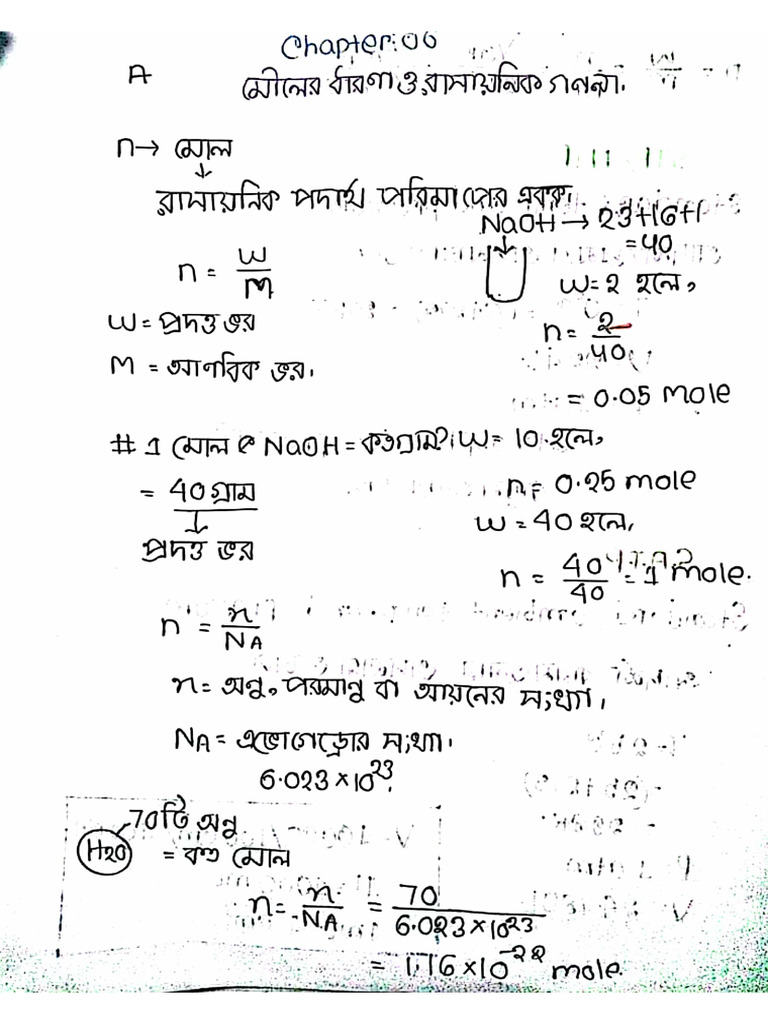 Chapter: 06
A
মৌলের ধারণা ও রাসায়নিক গণনা.
n → মোল
↓
রাসায়নিক পদার্থ পরিমাপের একক।
NaOH → 23+16+1
= 40
n = W/M
W = 2 হলে,
W = প্রদত্ত ভর
n = 2/40
M = আণবিক ভর।
= 0.05 mole
# 1 মোল e NaOH = কতগ্রাম? W = 10 হলে,
= 40 গ্রাম
n = 0.25 mole
↓
W = 40 হলে,
প্রদত্ত ভর
n = 40/40 = 1 mole.
n = n/NA
n = অনু, পরমানু বা আয়নের সংখ্যা।
NA = এভোগেড্রোর সংখ্যা।
6.023 × 10^23
H2O
70টি অনু
= কত মোল
n = n/NA = 70/6.023×10^23
= 1.16 × 10^-22 mole.